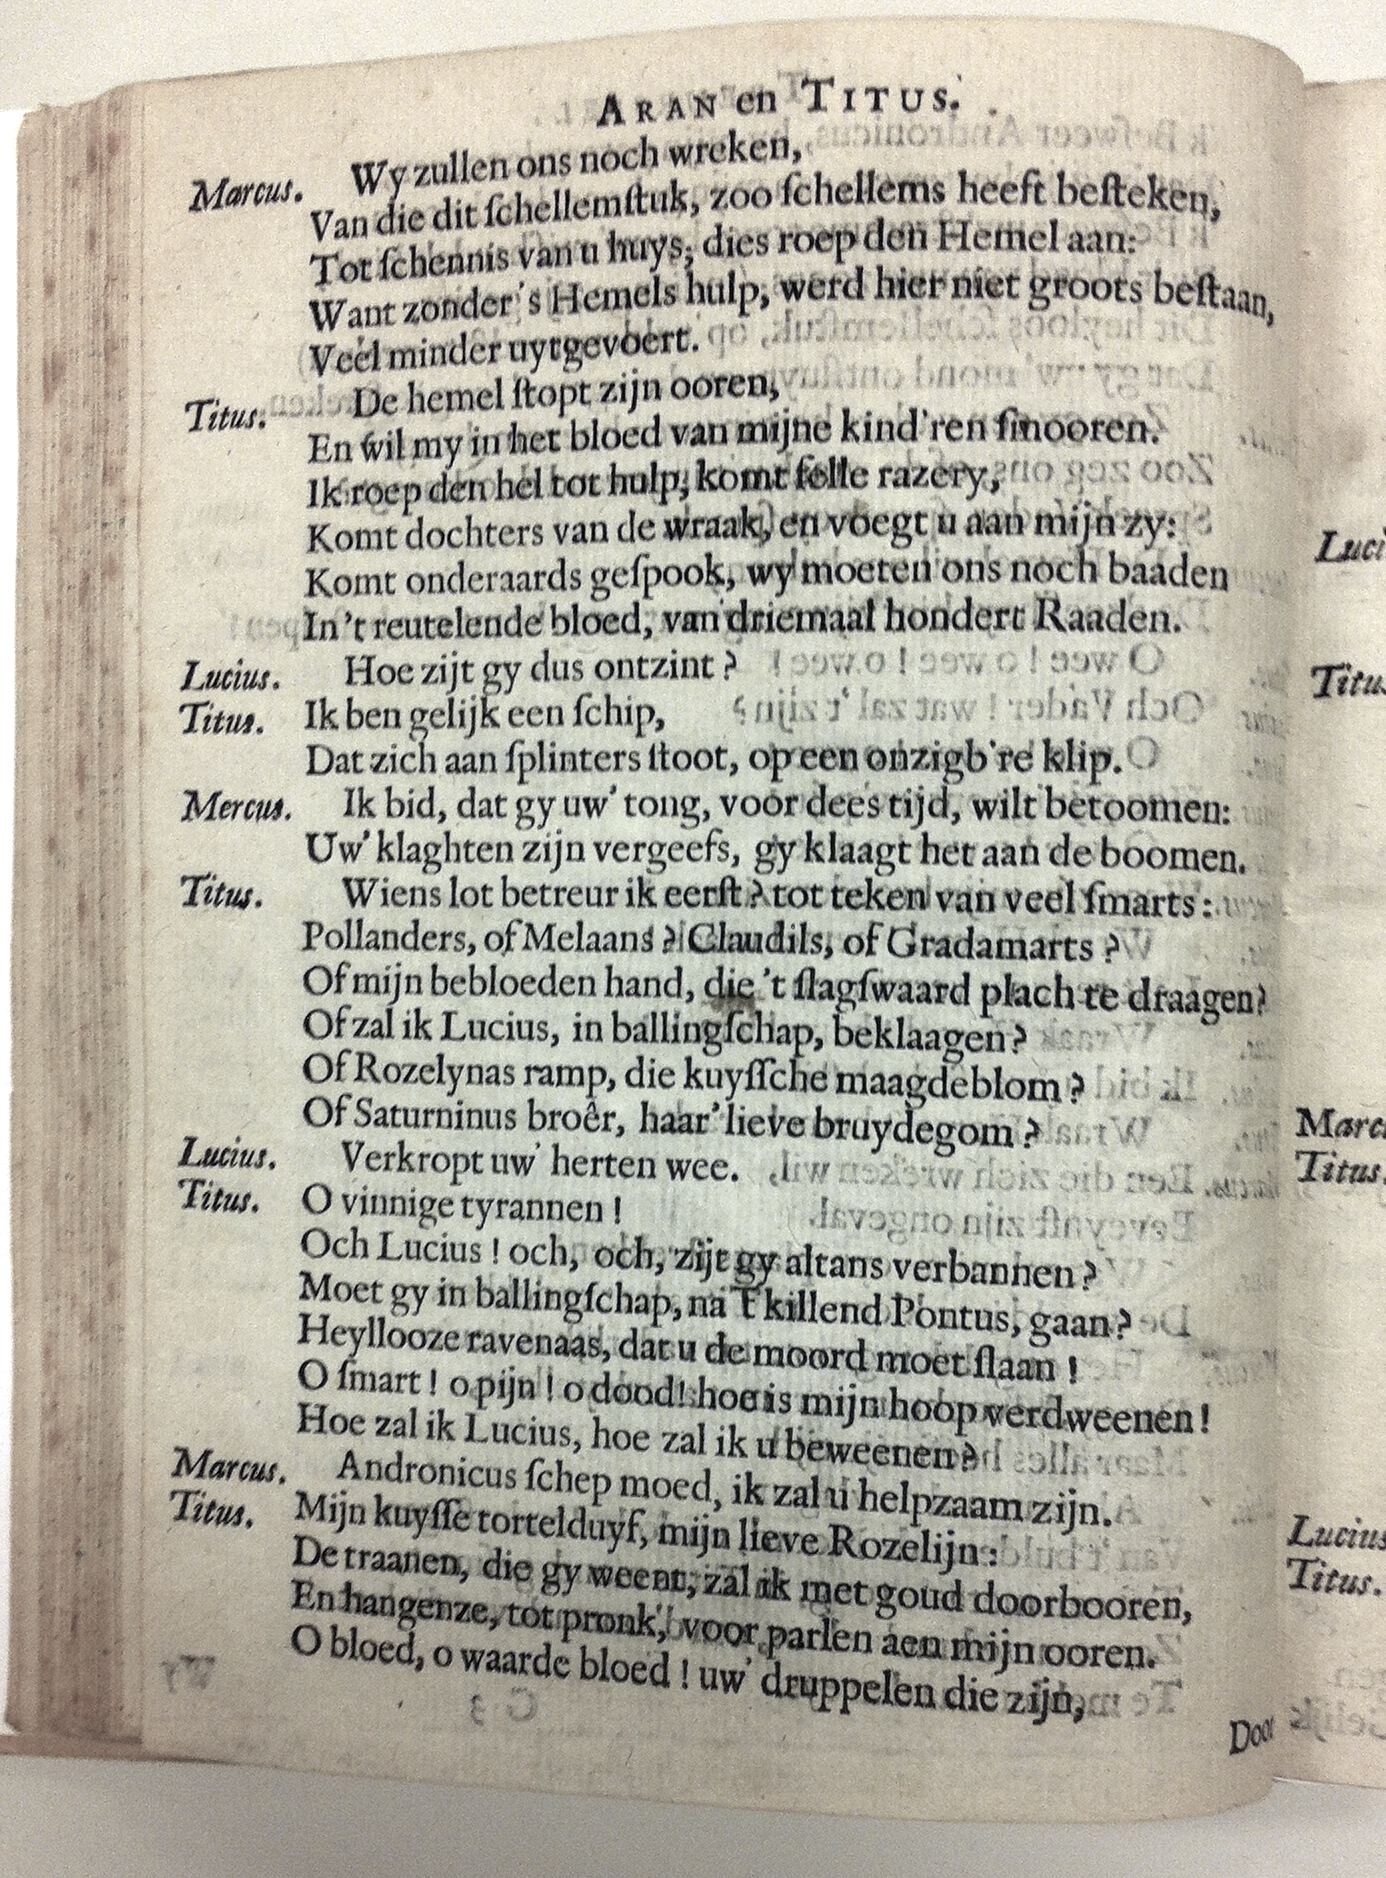 ARAN en TITUS.
Marcus. Wy zullen ons noch wreken,
Van die dit ſchellemſtuk, zoo ſchellems heeft beſteken,
Tot ſchennis van u huys; dies roep den Hemel aan:
Want zonder 's Hemels hulp, werd hier niet groots beſtaan,
Veel minder uytgevoert.
Titus. De hemel ſtopt zijn ooren,
En wil my in het bloed van mijne kind'ren ſmooren.
Ik roep den hel tot hulp; komt felle razery,
Komt dochters van de wraak, en voegt u aan mijn zy:
Komt onderaards geſpook, wy moeten ons noch baaden
In 't reutelende bloed, van driemaal hondert Raaden.
Lucius. Hoe zijt gy dus ontzint?
Titus. Ik ben gelijk een ſchip,
Dat zich aan ſplinters ſtoot, op een onzigb're klip.
Mercus. Ik bid, dat gy uw' tong, voor dees tijd, wilt betoomen:
Uw' klaghten zijn vergeefs, gy klaagt het aan de boomen.
Titus. Wiens lot betreur ik eerſt? tot teken van veel ſmarts:
Pollanders, of Melaans? Claudils, of Gradamarts?
Of mijn bebloeden hand, die 't ſlagſwaard plach te draagen?
Of zal ik Lucius, in ballingſchap, beklaagen?
Of Rozelynas ramp, die kuyſſche maagdeblom?
Of Saturninus broêr, haar' lieve bruydegom?
Lucius. Verkropt uw' herten wee.
Titus. O vinnige tyrannen!
Och Lucius! och, och, zijt gy altans verbannen?
Moet gy in ballingſchap, na 't killend Pontus, gaan?
Heyllooze ravenaas, dat u de moord moet ſlaan!
O ſmart! o pijn! o dood! hoe is mijn hoop verdweenen!
Hoe zal ik Lucius, hoe zal ik u beweenen?
Marcus. Andronicus ſchep moed, ik zal u helpzaam zijn.
Titus. Mijn kuyſſe tortelduyf, mijn lieve Rozelijn:
De traanen, die gy weent, zal ik met goud doorbooren,
En hangenze, tot pronk, voor parlen aen mijn ooren.
O bloed, o waarde bloed! uw' druppelen die zijn,
Door
Luci
Titus
Marc
Titus.
Lucius
Titus.